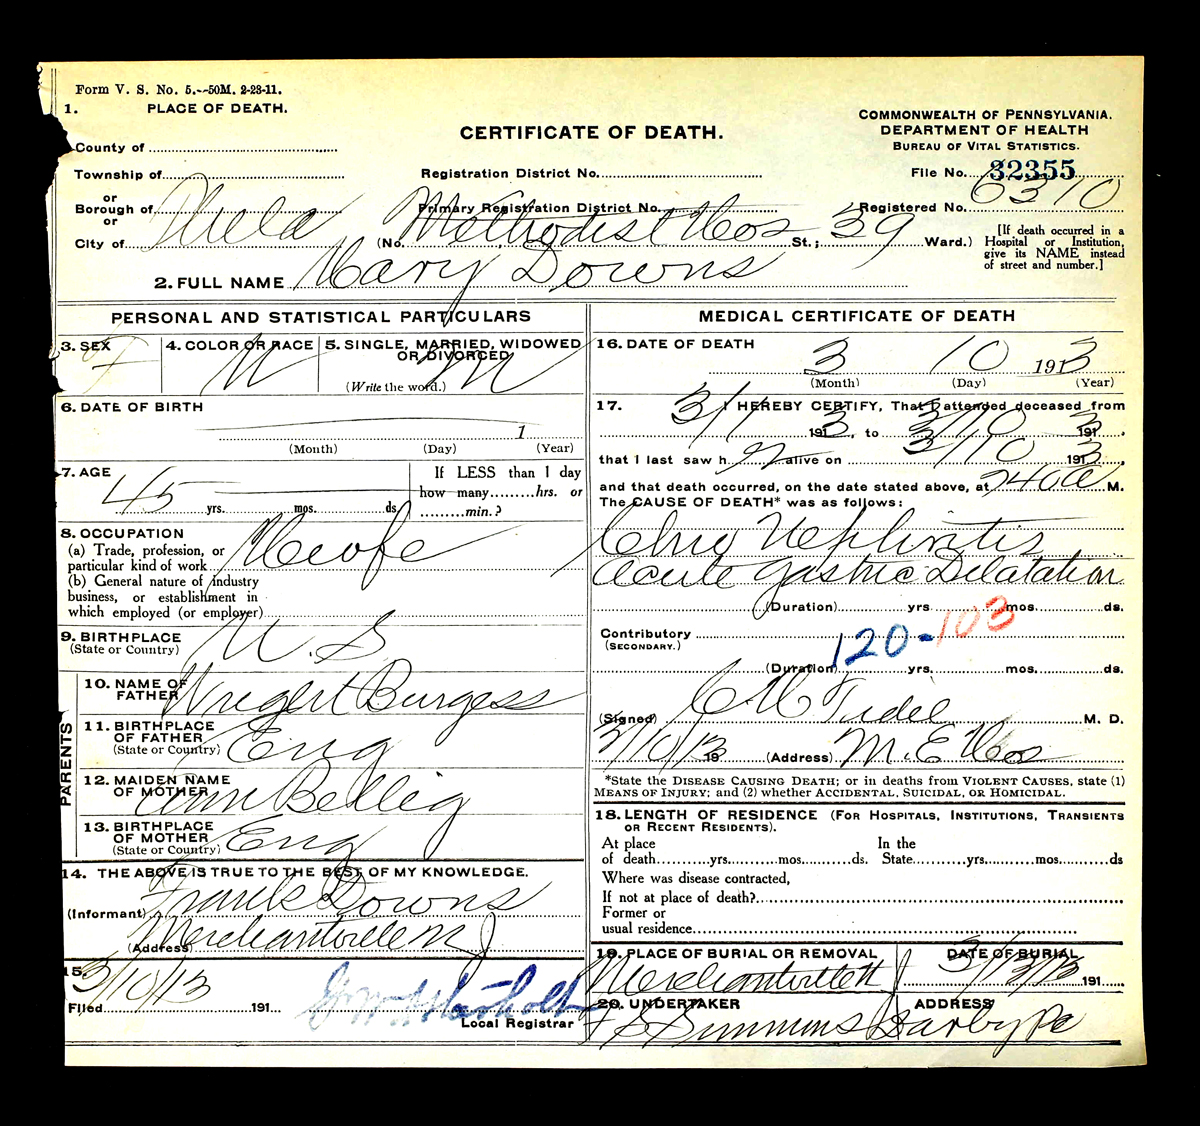 Form V. S. No. 5.--50M. 2-23-11.
1. PLACE OF DEATH.
CERTIFICATE OF DEATH.
COMMONWEALTH OF PENNSYLVANIA.
DEPARTMENT OF HEALTH
BUREAU OF VITAL STATISTICS.
County of
Township of
Registration District No.
File No. 32355
or
Borough of
Primary Registration District No.
Registered No. 6310
or
City of Phila (No. Methodist Hos St.; 39 Ward.)
[If death occurred in a
Hospital or Institution,
give its NAME instead
of street and number.]
2. FULL NAME Mary Downs
PERSONAL AND STATISTICAL PARTICULARS
3. SEX F
4. COLOR OR RACE W
5. SINGLE, MARRIED, WIDOWED
OR DIVORCED
(Write the word.) M
6. DATE OF BIRTH
1
(Month) (Day) (Year)
7. AGE
45 yrs. mos. ds.
If LESS than 1 day
how many hrs. or
min.?
8. OCCUPATION
(a) Trade, profession, or
particular kind of work
(b) General nature of industry
business, or establishment in
which employed (or employer)
9. BIRTHPLACE
(State or Country) U.S.
PARENTS
10. NAME OF
FATHER Wright Burgess
11. BIRTHPLACE
OF FATHER
(State or Country) Eng
12. MAIDEN NAME
OF MOTHER Ann
13. BIRTHPLACE
OF MOTHER
(State or Country) Eng
14. THE ABOVE IS TRUE TO THE BEST OF MY KNOWLEDGE.
(Informant) Frank Downs
(Address) Merchantville NJ
15.
3/10/13
Filed 191
Local Registrar
MEDICAL CERTIFICATE OF DEATH
16. DATE OF DEATH
3 10 1913
(Month) (Day) (Year)
17. I HEREBY CERTIFY, That I attended deceased from
3/1 1913, to 3/10 1913.
that I last saw h er alive on 3/10 1913,
and that death occurred, on the date stated above, at 740a M.
The CAUSE OF DEATH* was as follows:
Chro Nephritis
Acute Gastric Dilatation
(Duration) yrs. mos. ds.
Contributory
(SECONDARY.)
120-103
(Duration) yrs. mos. ds.
(Signed) M. D.
3/10/13 19 (Address) M. E. Hos
*State the DISEASE CAUSING DEATH; or in deaths from VIOLENT CAUSES, state (1)
MEANS OF INJURY; and (2) whether ACCIDENTAL, SUICIDAL, OR HOMICIDAL.
18. LENGTH OF RESIDENCE (FOR HOSPITALS, INSTITUTIONS, TRANSIENTS
OR RECENT RESIDENTS).
At place In the
of death yrs. mos. ds. State yrs. mos. ds
Where was disease contracted,
If not at place of death?
Former or
usual residence
19. PLACE OF BURIAL OR REMOVAL
DATE OF BURIAL
Merchantville NJ
3/13/13 191
20. UNDERTAKER
ADDRESS
F S Simmons Darby Pa